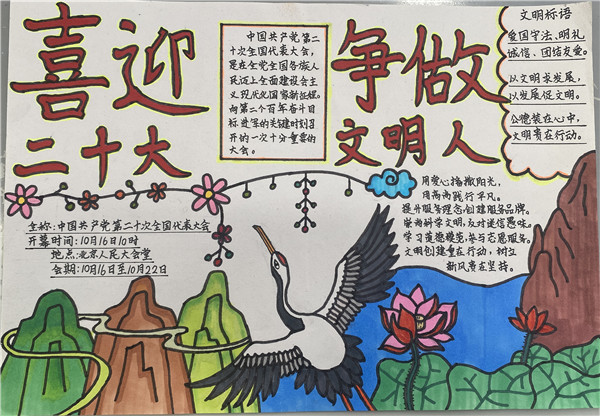 喜迎
二十大
中国共产党第二
十次全国代表大会,
是在全党全国各族人
民迈上全面建设会主
义现代化国家新征程、
向第二个百年奋斗目
标进军的关键时刻召
开的一次十分重要的
大会。
争做
文明人
文明标语
爱国守法、明礼
诚信、团结友爱。
以文明求发展,
以发展促文明。
公德装在心中,
文明贵在行动。
全称:中国共产党第二十次全国代表大会
开幕时间:10月16日10时
地点:北京人民大会堂
会期:10月16日至10月22日
用爱心播撒阳光,
用高尚践行平凡。
提升服务理念,创建服务品牌。
崇尚科学文明,反对迷信愚昧。
学习道德模范,参与志愿服务。
文明创建重在行动,树立
新风贵在坚持。